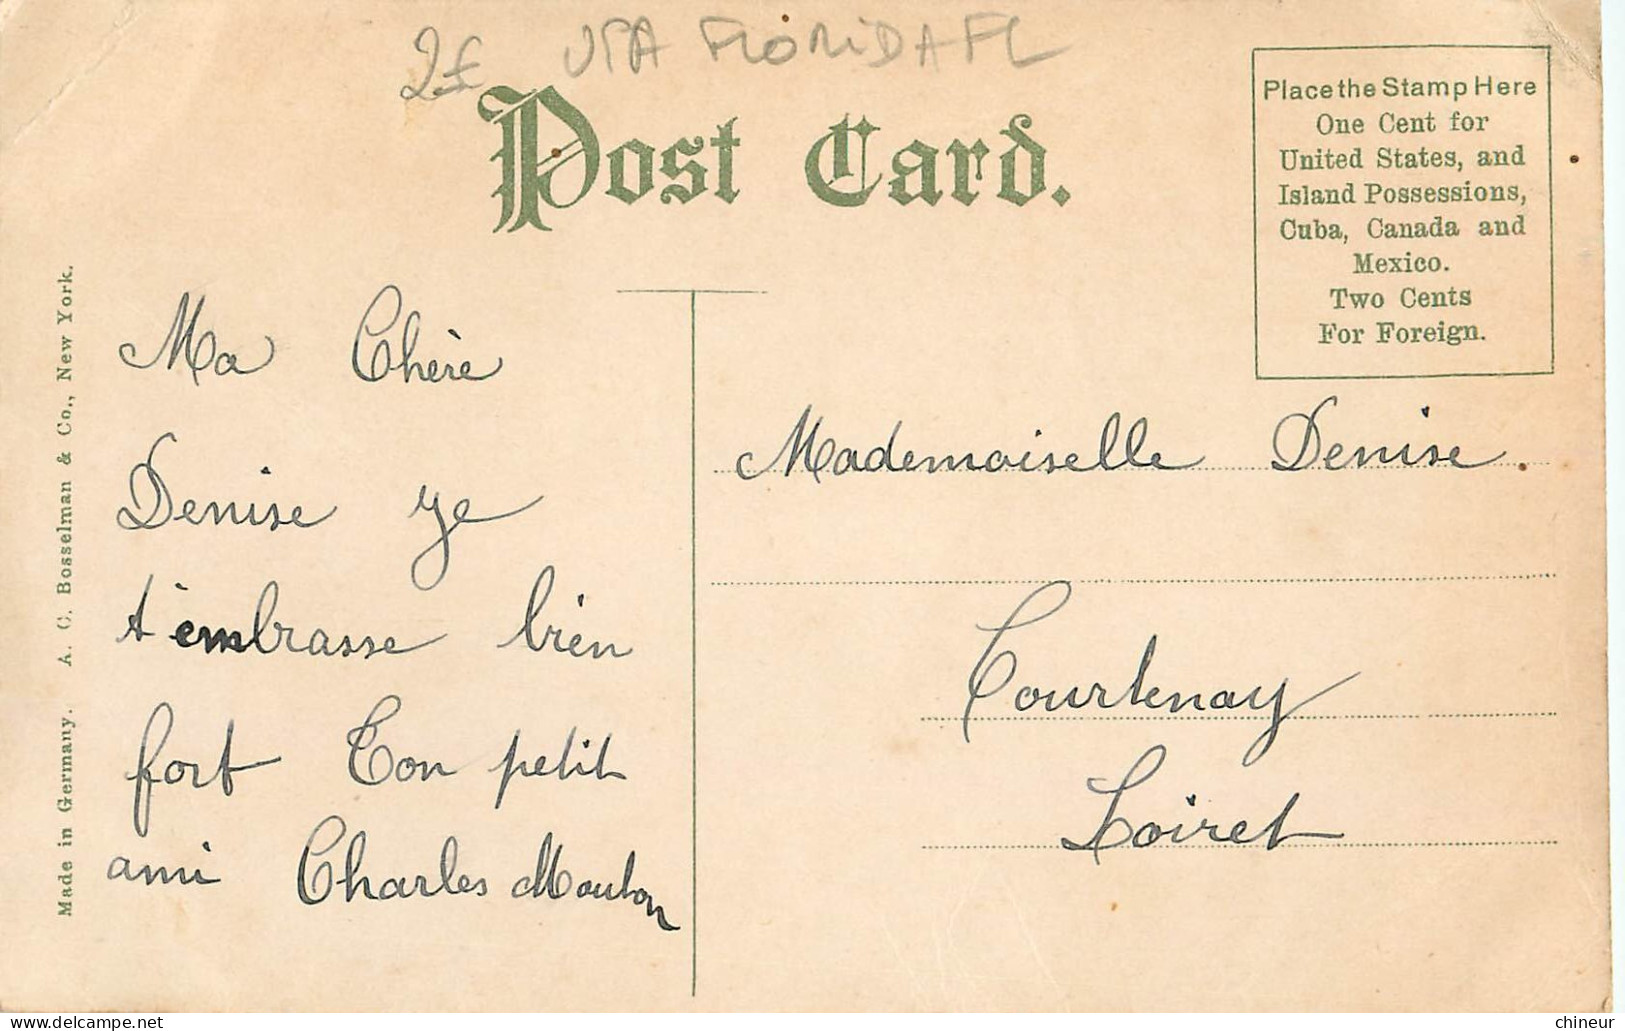 2£ USA FLORIDA FL
Post Card.
Place the Stamp Here
One Cent for
United States, and
Island Possessions,
Cuba, Canada and
Mexico.
Two Cents
For Foreign.
Made in Germany. A. C. Bosselman & Co., New York.
Ma Chère
Denise je
t'embrasse bien
fort Ton petit
ami Charles Mouton
Mademoiselle Denise.
Courtenay
Loiret
chineur